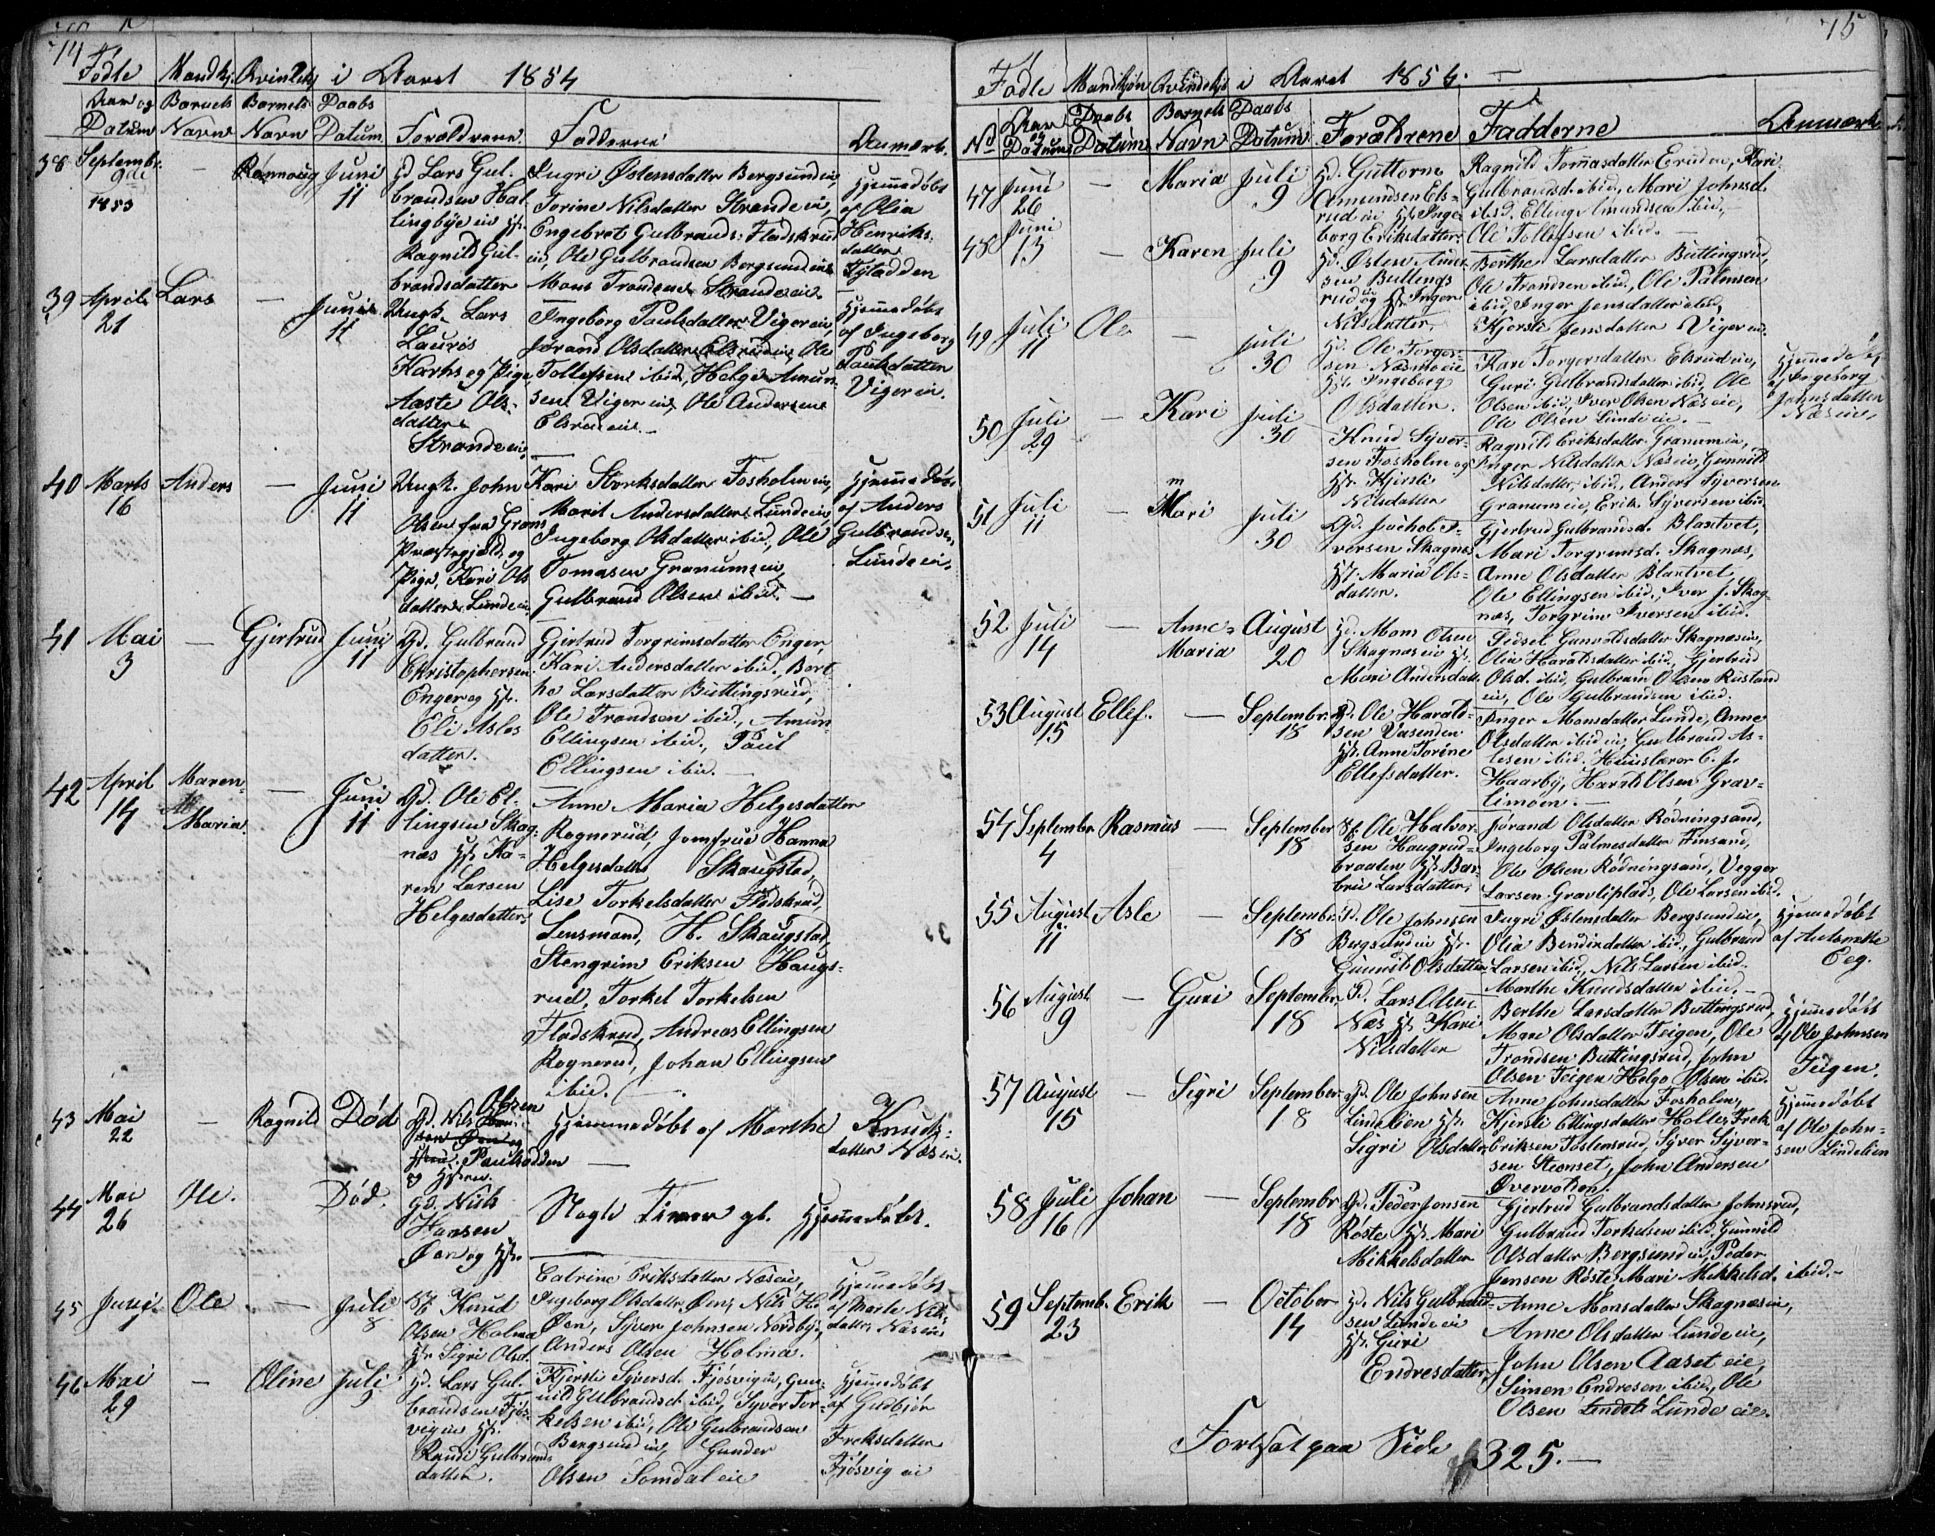 74
Fødte Mandkj. Qvindekj. i Aaret 1854
Aar og Datum
Barnets Navn
Barnets Navn
Daabs Datum
Forældrene
Fadderne
Anmærk.
38 Septembr. 9de 1853 — Rønnaug Juni 11
Gd Lars Gul-
brandsen Hal-
lingbye eie Hst.
Ragnild Gul-
brandsdatter
Ingri Østensdatter Bergsundeie,
Torine Nilsdatter Strande eie,
Engebret Gulbrands. Fladskrud
eie, Ole Gulbrandsen Bergsundeie
Mons Trondsen Strandeeie
Hjemmedøbt
af Olia
Henriks-
datter
39 April 21 Lars — Juni 11
Ungk. Lars
Laurits
og Pige
Aaste Ols-
datter
Strandeeie,
Ingeborg Paulsdatter Viger eie
Jørand Olsdatter Elsrudeie Ole
Tollefsen ibid, Helge Amun-
sen Viger eie, Ole Andersen
Elsrudeie. —
Hjemmedøbt
af Ingeborg
Paulsdatter
Viger eie.
40 Marts 16 Anders — Juni 11
Ungk. John
Olsen fra Grans
Præstegjæld, og
Pige, Kari Ols
datter Lunde eie
Kari Storksdatter Fosholm eie,
Marit Andersdatter Lunde eie
Ingeborg Olsdatter ibid, Ole
Tomasen Granum eie,
Gulbrand Olsen ibid. —
Hjemmedøbt
af Anders
Gulbrandsen,
Lunde eie,
41 Mai 3 — Gjertrud Juni 11
Gd. Gulbrand
Christophersen
Enger og Hst.
Eli Asles
datter.
Gjertrud Torgrimsdatter Enger,
Kari Andersdatter ibid, Bert
he Larsdatter Buttingsrud,
Ole Trondsen ibid, Amun
Ellingsen ibid, Paul
Ellingsen ibid. —
42 April 14 Maren Maria — Juni 11
Gd. Ole El-
lingsen Skag-
næs Hst. Ka-
ren Larsen
Helgesdatter
Anne Maria Helgesdatter
Rognerud, Jomfrue Hanna
Helgesdatter Skaugstad,
Lise Torkelsdatter Fladskrud,
Lensmand, H. Skaugstad,
Stengrim Eriksen Haugs-
rud, Torkel Torkelsen
Fladskrud, Andreas Ellingsen
Rognerud, Johan Ellingsen
ibid. —
43 Mai 22 — Ragnild Død
Gd. Nils Olsen
Paulsodden
og Hstru.
Hjemmedøbt af Marthe Knuds-
datter Næseie.
44 Mai 26 Ole. Død.
Gd. Niels
Hansen
Øen og Hst.
Nogle Timer gl. Hjemmedøbt.
45 Juni Ole — Juli 8
Knud
Olsen Holma
Hst. Sigri Olsd.
Catrine Eriksdatter Næseie,
Ingeborg Olsdatter Øen, Nils Ha.
Øen, Syver Johnsen Nordby,
Anders Olsen Holma.
Hjemmedøbt
af Marte Nils-
datter Næseie
46 Mai 29 — Oline Juli 9
Gd. Lars Gul-
brandsen Fjøs-
vig eie Hst.
Randi Gulbrands
datter.
Kjersti Syversd. Fjøsvigeie, Gun-
nild Gulbrandsd. ibid, Syver Tor-
kelsen ibid, Ole Gulbrandsen
Bergsund eie, Gunder
Olsen Somdal eie
Hjemmedøbt
af Gudbjør
Eriksdatter
Fjøsvig eie
75
Fødte Mandkjøn Qvindekjøn i Aaret 1854. —
No
Aar og Datum
Daabs Datum
Barnets Navn
Daabs Datum
Forældrene
Fadderne
Anmærk.
47 Juni 26 — Maria Juli 9
Gd. Guttorm
Amundsen Els-
rud eie Hst. Inge-
borg Eriksdatter
Ragnild Tomasdatter Elsrud eie, Kari
Gulbrandsd. ibid, Mari Johnsd.
ibid. Elling Amundsen ibid.,
Ole Tollefsen ibid. —
48 Juni 13 — Karen Juli 9
Gd. Østen Amun-
sen Buttings
rud eie og Hst. Inger
Nilsdatter.
Berthe Larsdatter Buttingsrud,
Ole Trondsen ibid, Ole Palmesen
ibid, Inger Jensdatter ibid,
Kjersti Jensdatter Viger eie.
49 Juli 11 Ole — Juli 30
Gd. Ole Torger-
sen Næsmoeie
Hst. Ingeborg
Olsdatter.
Kari Torgersdatter Elsrudeie,
Guri Gulbrandsdatter ibid, Ole
Olsen ibid, Iver Olsen Næseie,
Ole Olsen Lunde eie. —
Hjemmedøbt
af Ingeborg
Johnsdatter
Næseie.
50 Juli 29 — Kari Juli 30
Knud Syver-
sen Fosholm og
Hst. Kjersti
Nilsdatter
Ragnild Eriksdatter Granum eie,
Inger Nilsdatter Næseie, Gunnild
Nilsdatter, ibid, Anders Syversen
Granumeie, Erik Syversen ibid.
51 Juli 11 — Mari Juli 30
Gd. Jachob I-
versen Skagnæs
Hst. Maria Ols-
datter.
Gjertrud Gulbransd. Blaxtvet,
Mari Torgrimsd. Skagnæs,
Anne Olsdatter Blaxtvet,
Ole Ellingsen ibid., Iver J. Skag-
næs, Torgrim Iversen ibid.
52 Juli 14 — Anne Maria August 20
Gd. Mons Olsen
Skagnæs eie Hst.
Mari Andersdatt.
Sidsel Gunvaldsdatter Skagnæseie,
Olia Haraldsdatter ibid, Gjertrud
Olsd. ibid, Gulbran Olsen Rustand
eie, Ole Gulbrandsen ibid.
53 August 15 Ellef. — Septembr. 18
Gd. Ole Harald-
sen Vasenden
Hst. Anne Torine
Ellefsdatter.
Inger Monsdatter Lunde, Anne
Olsdatter ibid eie, Gulbrand As-
lesen ibid. Huuslærer C. J.
Haarby, Harald Olsen Grav-
limoen. —
54 Septembr. 4 Rasmus — September 18
Ole Halvor-
sen Haugrud-
braaten Hst. Bar-
bru Larsdatter,
Jørand Olsdatter Rødningsand,
Ingeborg Palmesdatter Finsand,
Ole Olsen Rødningsand, Vegger
Larsen Gravliplads, Ole Larsen ibid.
55 August 11 Asle September. 18
Gd. Ole Johnsen
Bergsundeie Hst.
Gunnild Olsdatter
Ingri Østensdatter Bergsundeie,
Olia Bendixdatter ibid, Gulbrand
Larsen ibid, Nils Larsen ibid.
Marthe Knudsdatter ibid. —
Hjemmedøbt
af Antonette
Eeg.
56 August 9 — Guri September 18
Gd. Lars Olsen
Næs Hst. Kari
Nilsdatter
Berthe Larsdatter Buttingsrud,
Mari Olsdatter Teigen, Ole
Trondsen Buttingsrud, John
Olsen Teigen, Helge Olsen ibid.
Hjemmedøbt
af Ole Johnsen
Teigen.
57 August 15 — Sigri September 18
Gd. Ole Johnsen
Lindelien Hst.
Sigri Olsdatter
Anne Johnsdatter Fosholm,
Kjersti Ellingsdatter Holte, Erik
Eriksen Tostensrud, Syver Syver-
sen Steenset, John Andersen
Hjemmedøbt
af Ole John-
sen Lindelien
58 Juli 16 Johan — September 18
Gd. Peder Jensen
Røste Hst. Mari
Mikkelsdatter
Gjertrud Gulbrandsdatter Johnsrud,
Gulbrand Torkelsen ibid, Gunnild
Olsdatter Bergsund eie, Peder
Jensen Røste, Mari Mikkelsd. ibid. —
59 Septemb. 23 Erik — October 14
Gd. Nils Gulbrand-
sen Lunde eie
Hst. Guri
Endresdatter
Anne Monsdatter Skagnæseie,
Anne Olsdatter Lunde eie,
John Olsen Aaset eie,
Simen Endresen ibid, Ole
Olsen Lunde eie.
Fortsat paa Side 325. —